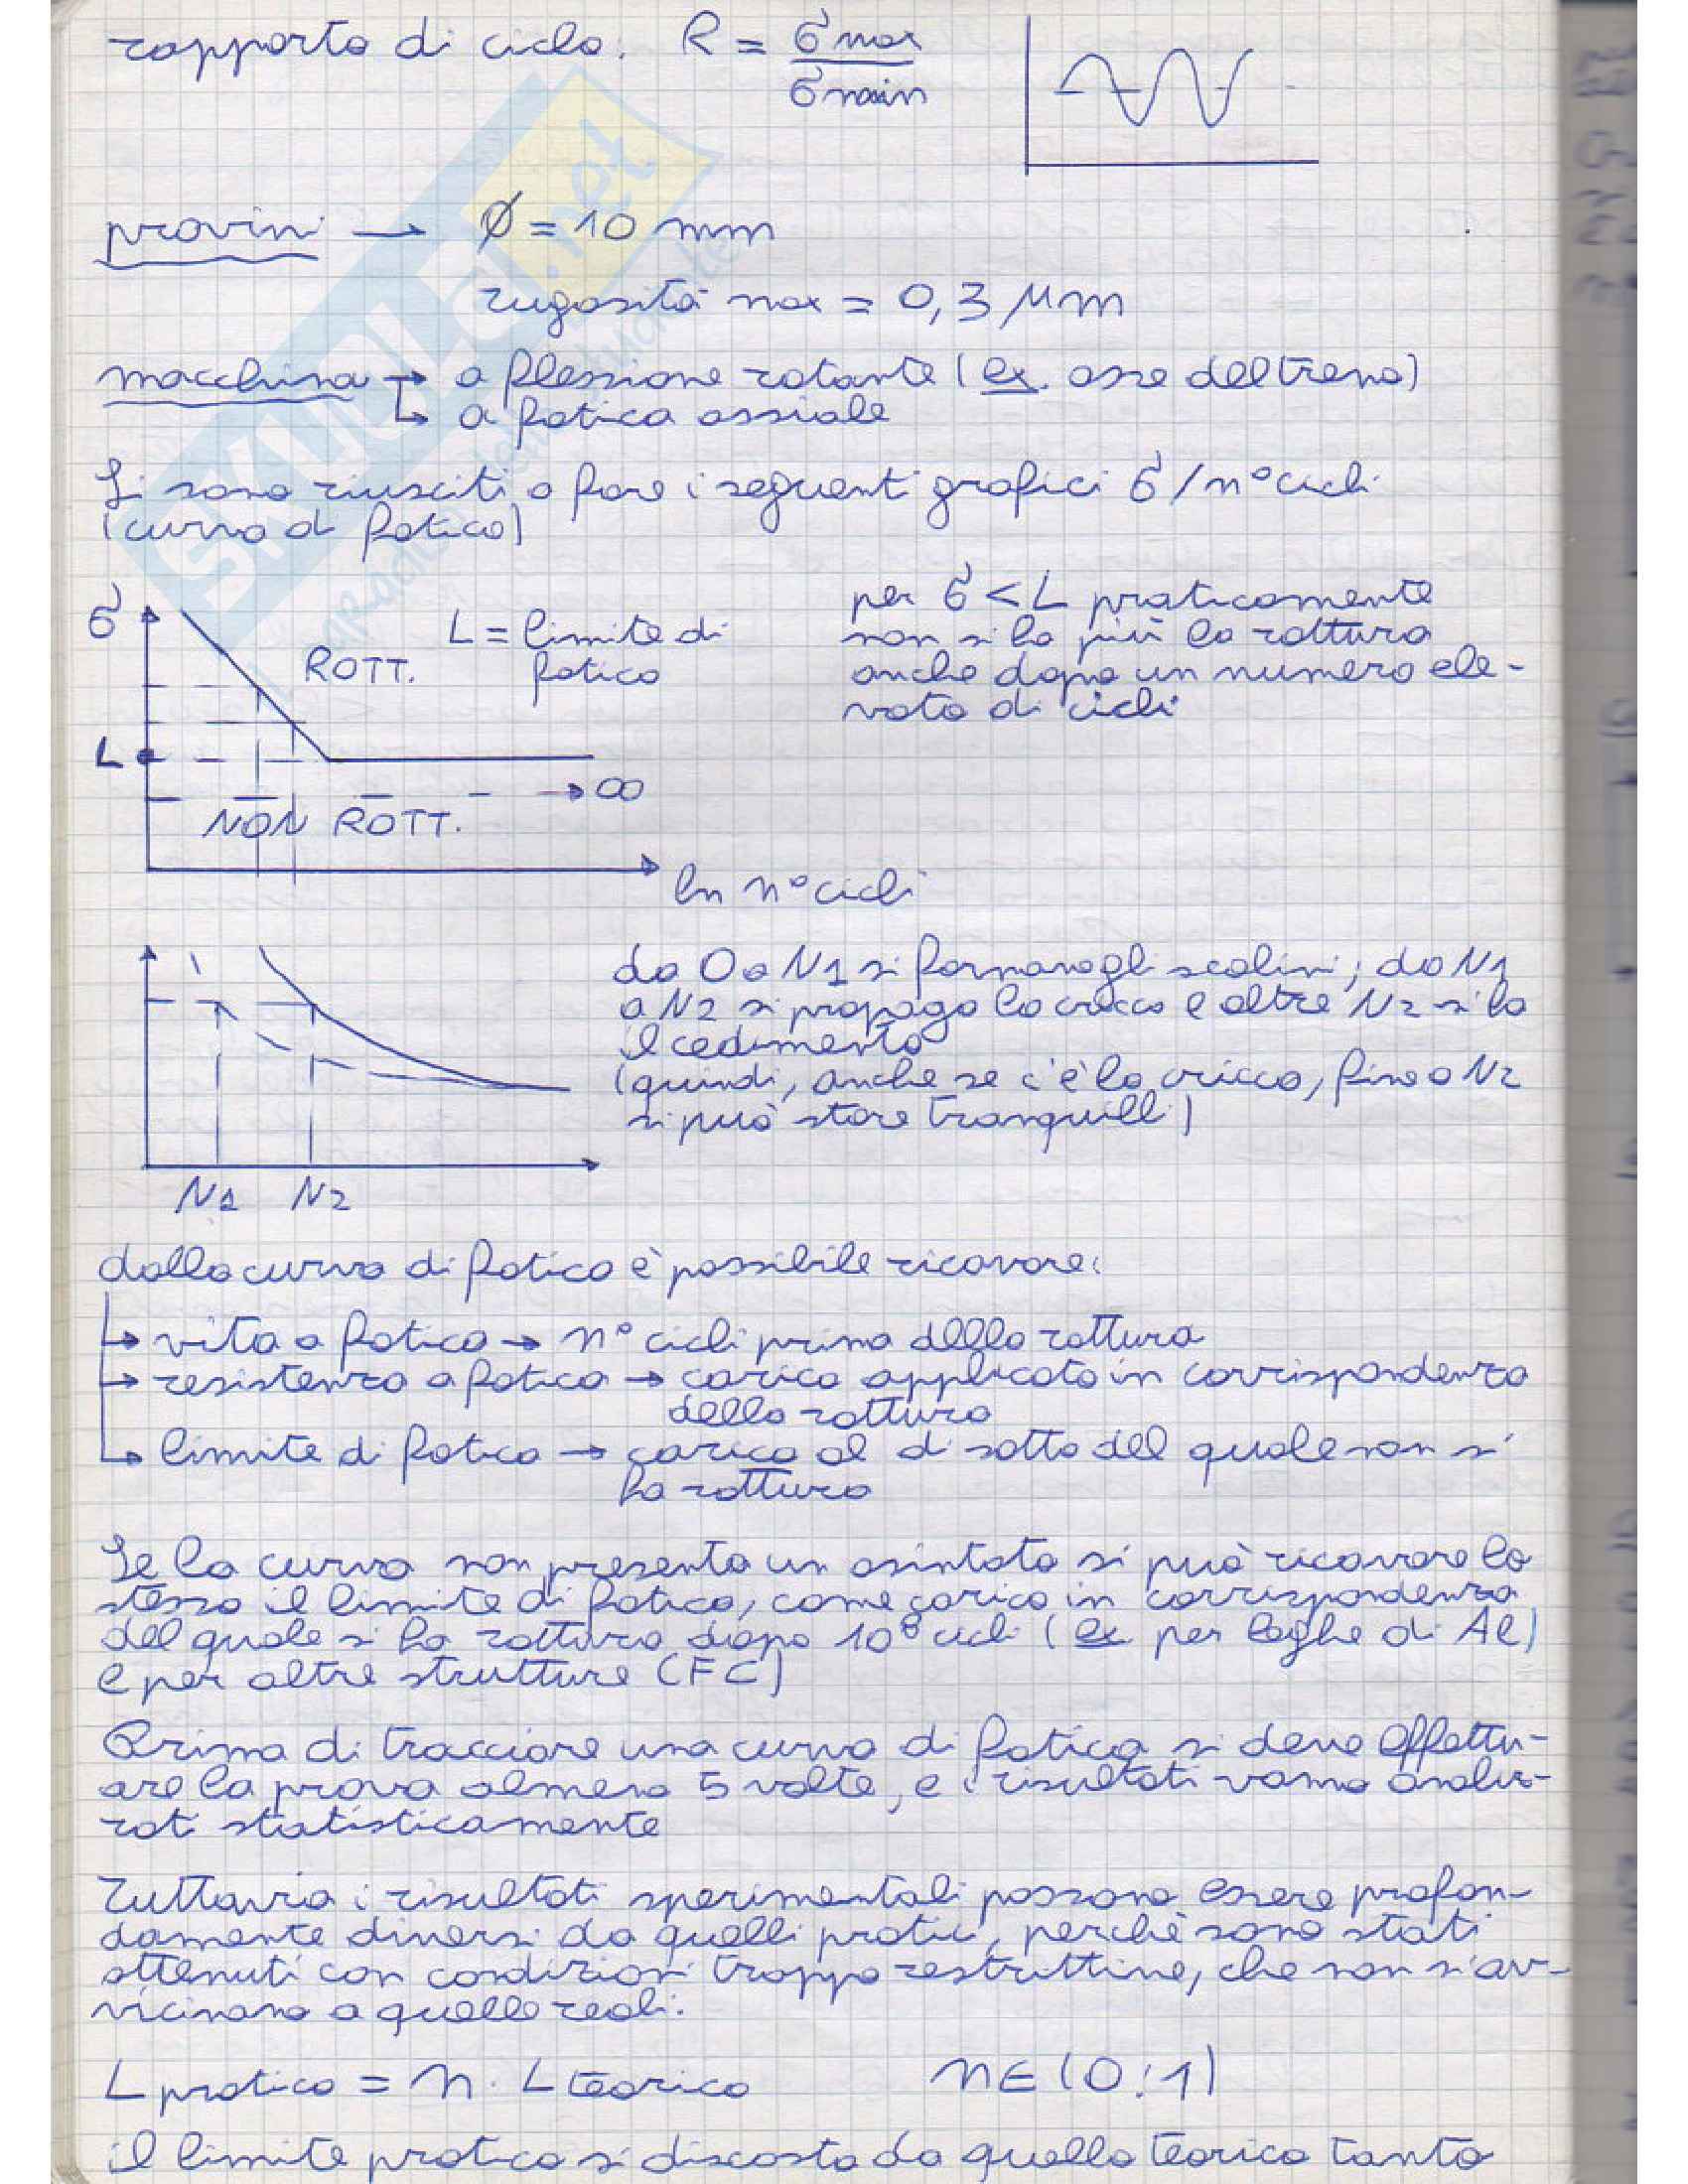 rapporto di ciclo: R = σmax / σmin
provini → ∅ = 10 mm
rugosità max = 0,3 μm
macchina → a flessione rotante (ex. asse del treno)
↳ a fatica assiale
Si sono riusciti a fare i seguenti grafici σ/n° cicli
(curva di fatica)
σ
ROTT.
L = limite di
fatica
L
∞
NON ROTT.
ln n° cicli
per σ < L praticamente
non si ha più la rottura
anche dopo un numero ele-
vato di cicli
N1 N2
da 0 a N1 si formano gli scalini; da N1
a N2 si propaga la cricca e oltre N2 si ha
il cedimento
(quindi, anche se c'è la cricca, fino a N2
si può stare tranquilli)
dalla curva di fatica è possibile ricavare:
→ vita a fatica → n° cicli prima della rottura
→ resistenza a fatica → carico applicato in corrispondenza
della rottura
↳ limite di fatica → carico al di sotto del quale non si
ha rottura
Se la curva non presenta un asintoto si può ricavare lo
stesso il limite di fatica, come carico in corrispondenza
del quale si ha rottura dopo 10⁸ cicli (ex per leghe di Al)
e per altre strutture (FC)
Prima di tracciare una curva di fatica si deve effettu-
are la prova almeno 5 volte, e i risultati vanno analiz-
zati statisticamente
Tuttavia i risultati sperimentali possono essere profon-
damente diversi da quelli pratici, perchè sono stati
ottenuti con condizioni troppo restrittive, che non si av-
vicinano a quelle reali.
L pratico = n · L teorico n∈(0:1)
il limite pratico si discosta da quello teorico tanto
SKUOLA.net